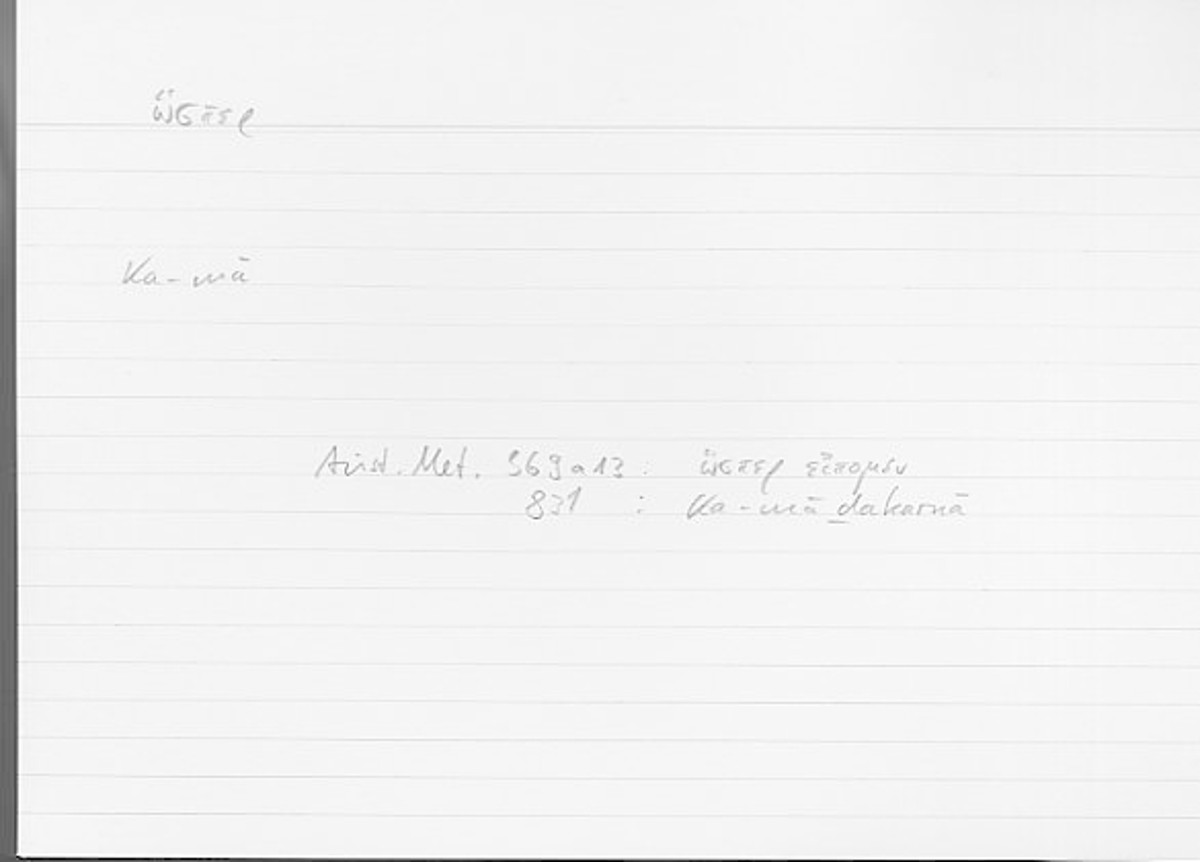 ὥσπερ
Ka-mā
Arist. Met. 969a13 : ὥσπερ εἴπομεν
831 : Ka-mā ḏakarnā